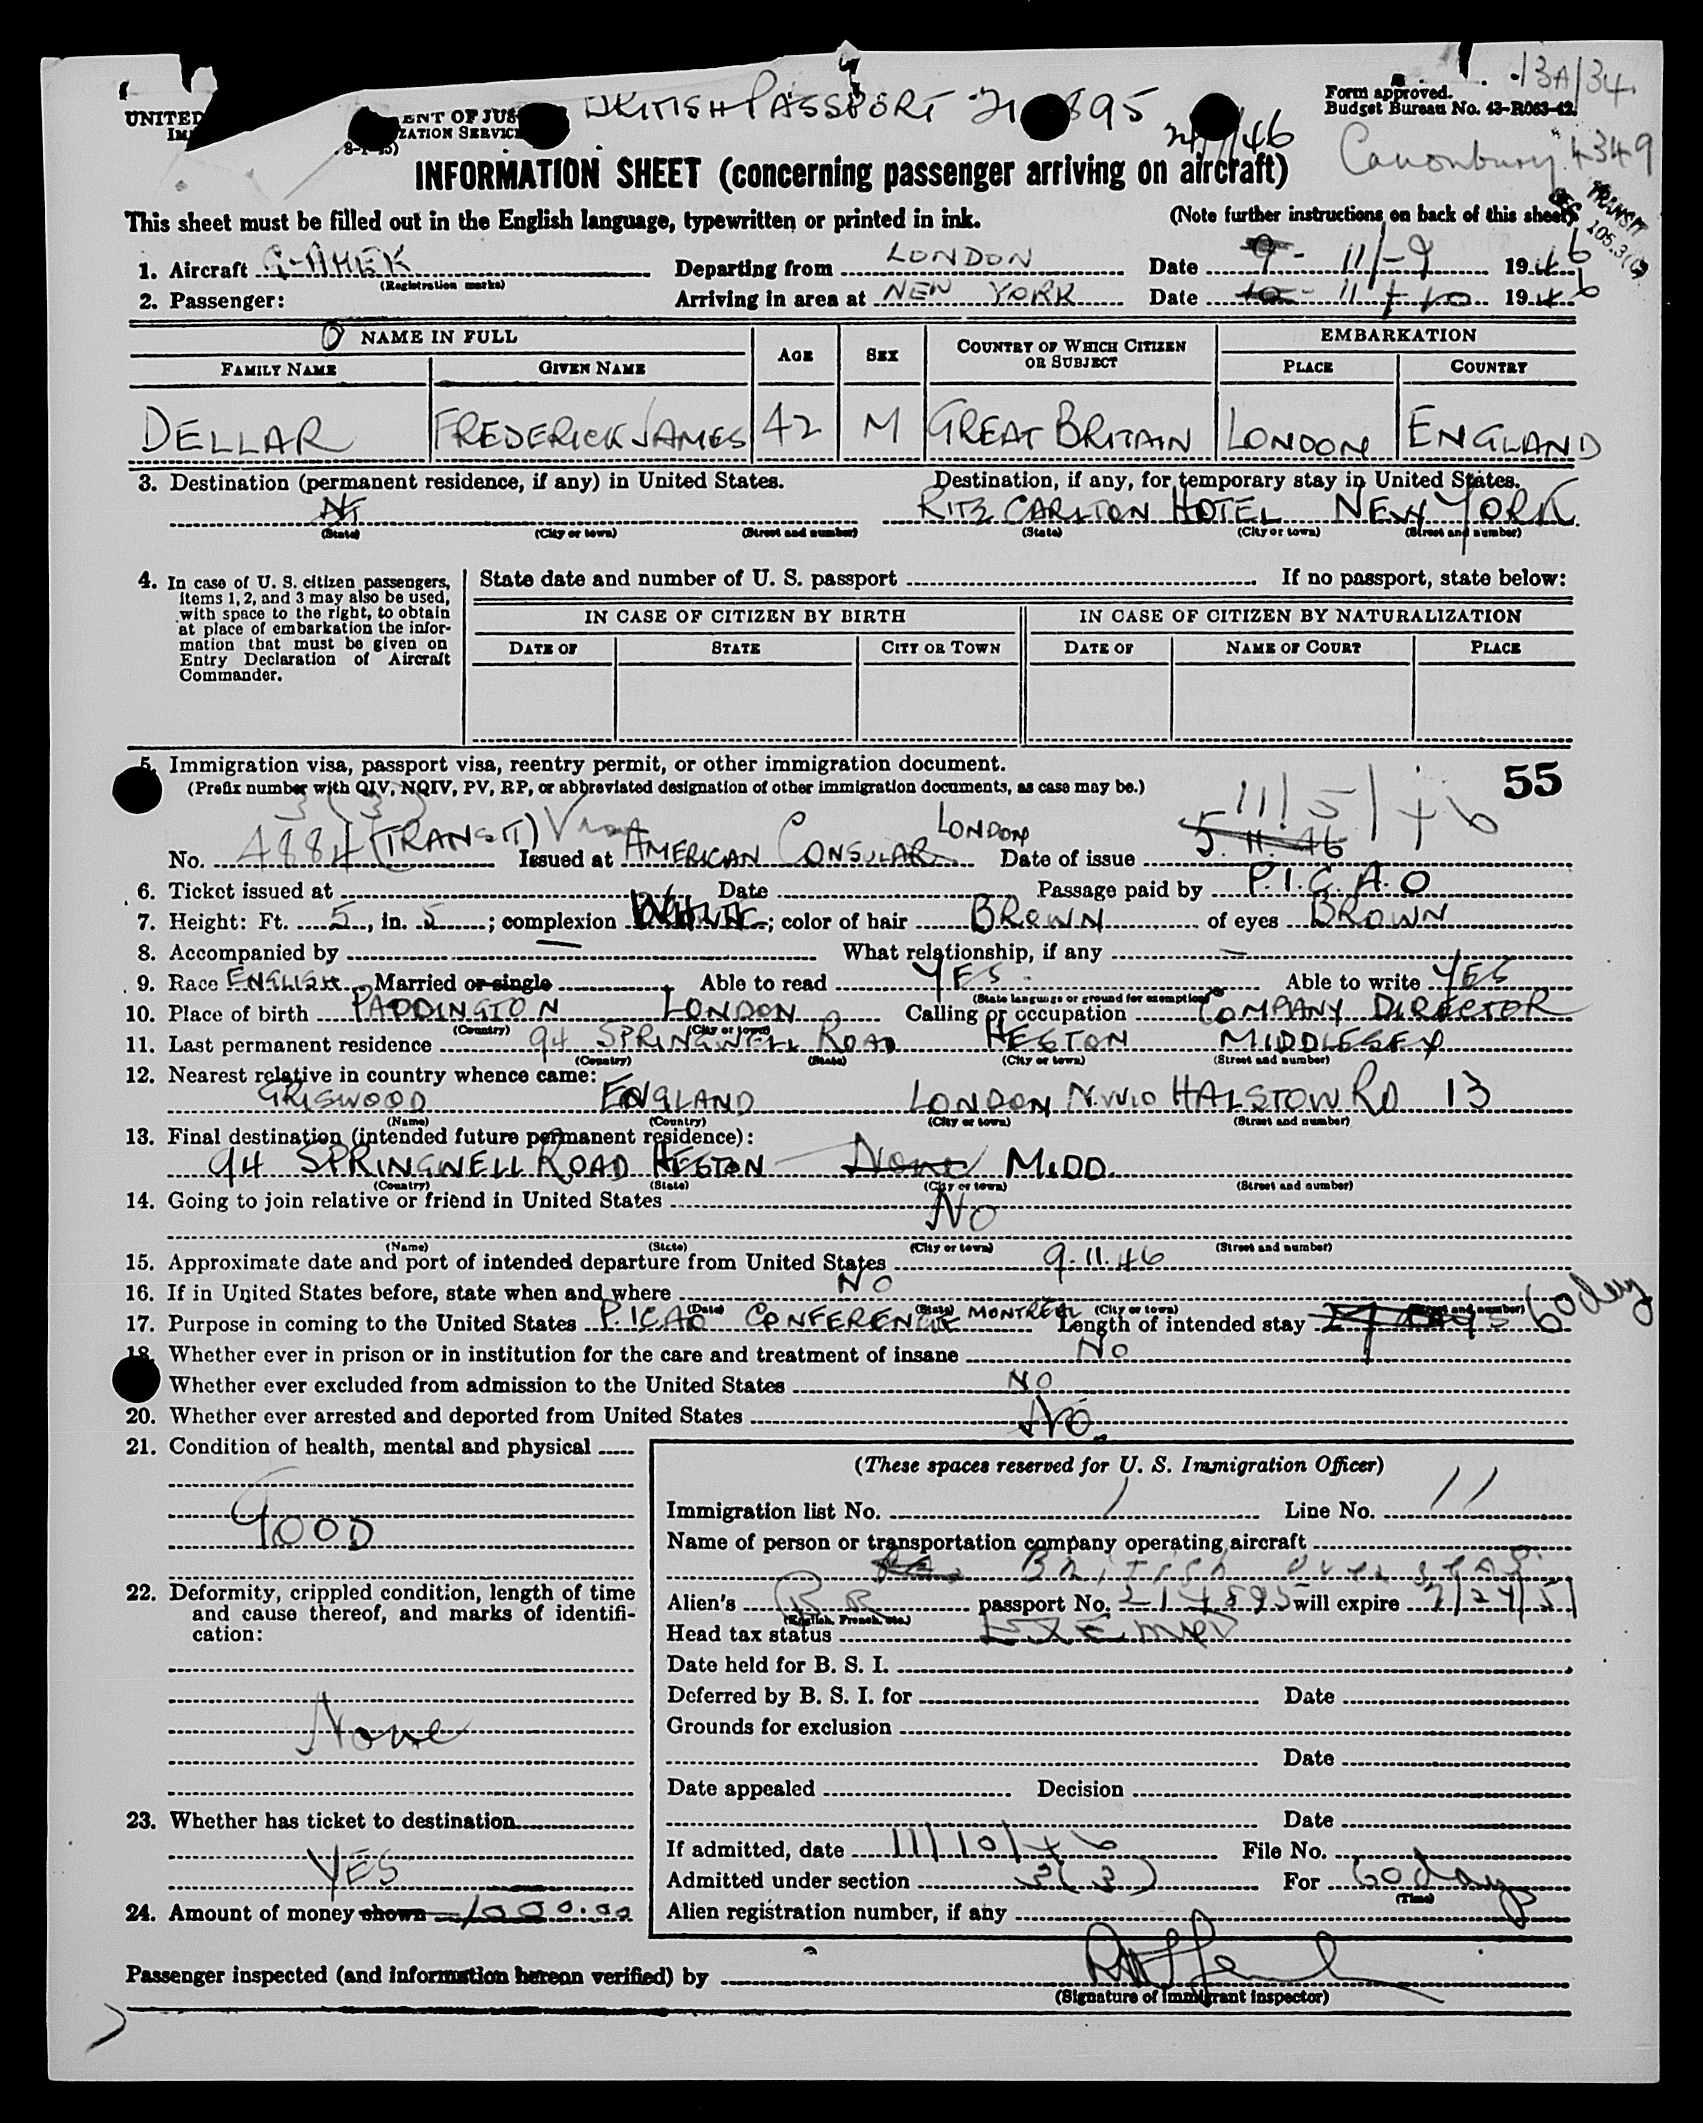 13A/34.
BRITISH PASSPORT
Form approved.
Budget Bureau No. 43-R083-42.
UNITED
ENT OF JUS
ZATION SERVIC
Canonbury 4349
INFORMATION SHEET (concerning passenger arriving on aircraft)
This sheet must be filled out in the English language, typewritten or printed in ink.
(Note further instructions on back of this sheet)
TRANSIT
1. Aircraft G-AHEK Departing from LONDON Date 9- 11/-9 1946
(Registration marks)
2. Passenger: Arriving in area at NEW YORK Date 10- 11/-10 1946
NAME IN FULL AGE SEX COUNTRY OF WHICH CITIZEN OR SUBJECT EMBARKATION
FAMILY NAME GIVEN NAME PLACE COUNTRY
DELLAR FREDERICK JAMES 42 M GREAT BRITAIN LONDON ENGLAND
3. Destination (permanent residence, if any) in United States. Destination, if any, for temporary stay in United States.
RITZ CARLTON HOTEL NEW YORK
(State) (City or town) (Street and number) (State) (City or town) (Street and number)
4. In case of U. S. citizen passengers, items 1, 2, and 3 may also be used, with space to the right, to obtain at place of embarkation the information that must be given on Entry Declaration of Aircraft Commander.
State date and number of U. S. passport If no passport, state below:
IN CASE OF CITIZEN BY BIRTH IN CASE OF CITIZEN BY NATURALIZATION
DATE OF STATE CITY OR TOWN DATE OF NAME OF COURT PLACE
5. Immigration visa, passport visa, reentry permit, or other immigration document. 55
(Prefix number with QIV, NQIV, PV, RP, or abbreviated designation of other immigration documents, as case may be.)
3 (3) LONDON 11/5/46
No. 4884 (TRANSIT) Visa Issued at AMERICAN CONSULAR Date of issue 5. 11. 46
6. Ticket issued at Date Passage paid by P.I.C.A.O
7. Height: Ft. 5, in. 5; complexion WHITE; color of hair BROWN of eyes BROWN
8. Accompanied by — What relationship, if any —
9. Race ENGLISH Married or single Able to read YES Able to write YES
(State language or ground for exemption)
10. Place of birth PADDINGTON LONDON Calling or occupation COMPANY DIRECTOR
(Country) (City or town)
11. Last permanent residence 94 SPRINGWELL ROAD HESTON MIDDLESEX
(Country) (State) (City or town) (Street and number)
12. Nearest relative in country whence came:
GRISWOOD ENGLAND LONDON N.W10 HALSTOW RD 13
(Name) (Country) (City or town) (Street and number)
13. Final destination (intended future permanent residence):
94 SPRINGWELL ROAD HESTON None MIDD.
(Country) (State) (City or town) (Street and number)
14. Going to join relative or friend in United States NO
(Name) (State) (City or town) (Street and number)
15. Approximate date and port of intended departure from United States 9.11.46
16. If in United States before, state when and where NO
(Date) (State) (City or town) (Street and number)
17. Purpose in coming to the United States P.ICAO CONFERENCE MONTREAL Length of intended stay 60 days
18. Whether ever in prison or in institution for the care and treatment of insane NO
Whether ever excluded from admission to the United States NO
20. Whether ever arrested and deported from United States NO.
21. Condition of health, mental and physical
GOOD
22. Deformity, crippled condition, length of time and cause thereof, and marks of identification:
None
23. Whether has ticket to destination
YES
24. Amount of money shown 1000.00
(These spaces reserved for U. S. Immigration Officer)
Immigration list No. 1 Line No. 11
Name of person or transportation company operating aircraft
British Overseas
Alien's passport No. 214895 will expire 7/24/51
(English, French, etc.)
Head tax status EXEMPT
Date held for B. S. I.
Deferred by B. S. I. for Date
Grounds for exclusion
Date
Date appealed Decision
Date
If admitted, date 11/10/46 File No.
Admitted under section 3(3) For 60 days
(Time)
Alien registration number, if any
Passenger inspected (and information hereon verified) by
(Signature of immigrant inspector)